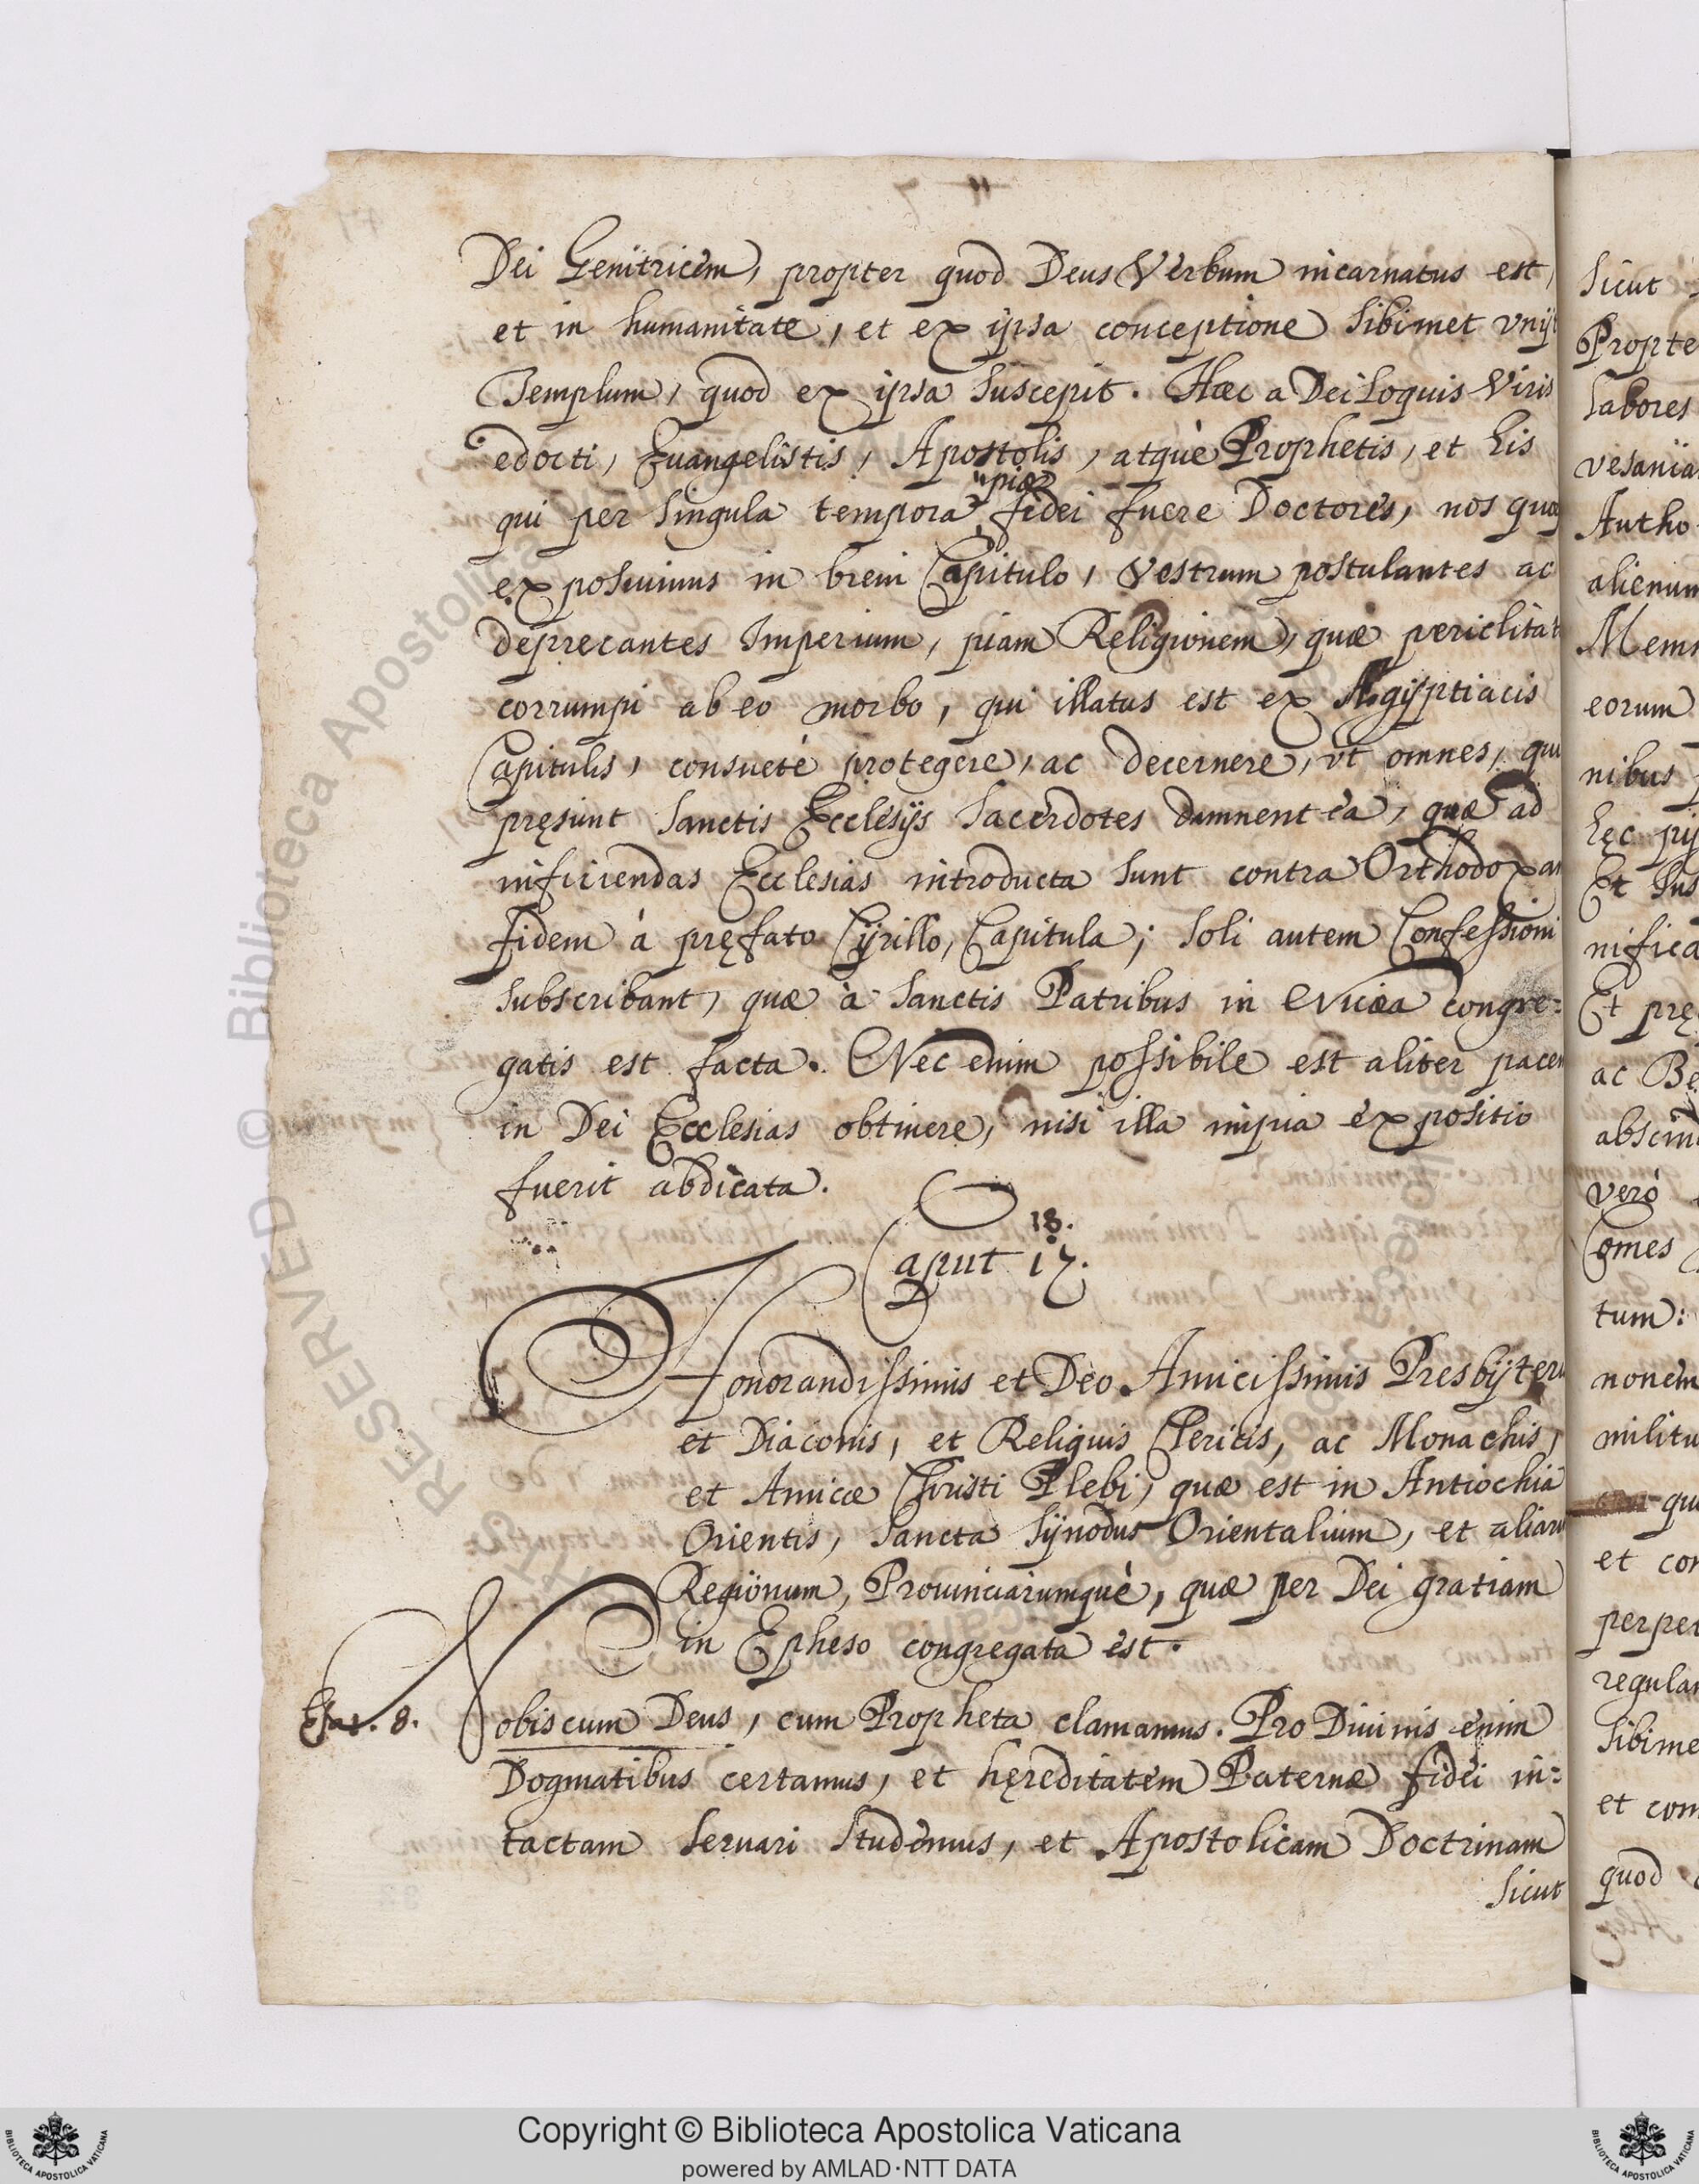 Dei Genitricem, propter quod Deus Verbum incarnatus est,
et in humanitate, et ex ipsa conceptione sibimet vnijt
Templum, quod ex ipsa suscepit. Hæc a Deiloquis Viris
edocti, Euangelistis, Apostolis, atquè Prophetis, et his
piæ
qui per singula tempora fidei fuere Doctores, nos quoq
exposuimus in breui Capitulo, Vestrum postulantes ac
deprecantes Imperium, piam Religionem, quæ periclitat
corrumpi ab eo morbo, qui illatus est ex Ægyptiacis
Capitulis, consuetè protegere, ac decernere, vt omnes, qui
pręsunt Sanctis Ecclesijs Sacerdotes damnent ea, quæ ad
inficiendas Ecclesias introducta sunt contra Orthodoxam
fidem à pręfato Cyrillo, Capitula; soli autem Confessioni
subscribant, quæ à Sanctis Patribus in Nicæa congre=
gatis est facta. Nec enim possibile est aliter pacem
in Dei Ecclesias obtinere, nisi illa impia expositio
fuerit abdicata.
18.
Caput 17.
Honorandissimis et Deo Amicissimis Presbyteris
et Diaconis, et Reliquis Clericis, ac Monachis,
et Amicæ Christi Plebi, quæ est in Antiochia
Orientis, Sancta Synodus Orientalium, et aliaru
Regionum, Prouinciarumquè, quæ per Dei gratiam
in Epheso congregata est.
Esai. 8.
Nobiscum Deus, cum Propheta clamamus. Pro Diuinis enim
Dogmatibus certamus, et hęreditatem Paternæ fidei in=
tactam seruari studemus, et Apostolicam Doctrinam
sicut
sicut
Propte
labores
vesania
Autho
alienum
Mem
eorum
nibus
hęc pij
Et sus
nifica
Et prę
ac Be
abscin
verò
Comes
tum:
nonem
militu
qu
et con
perper
regular
sibime
et com
quod
© Biblioteca Apostolica
RESERVED
Copyright © Biblioteca Apostolica Vaticana
powered by AMLAD·NTT DATA
BIBLIOTECA APOSTOLICA VATICANA
BIBLIOTECA APOSTOLICA VATICANA